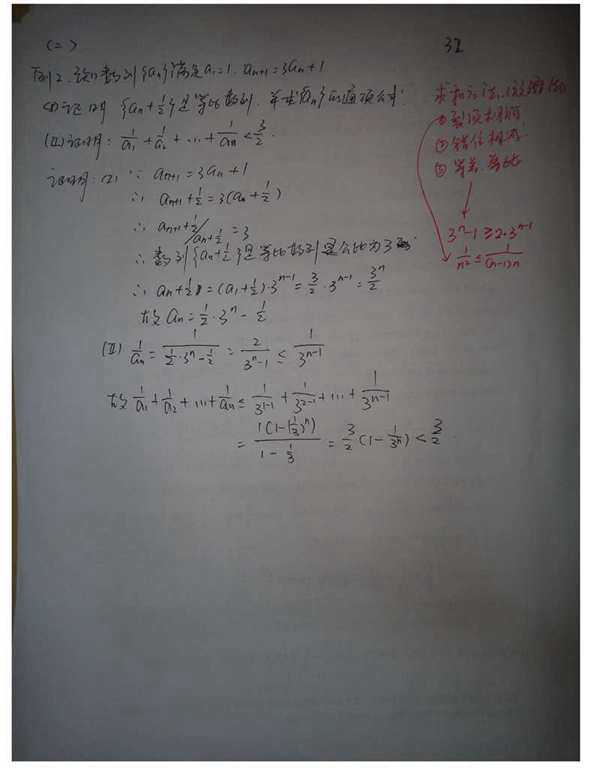 (二)
32
例2. 设数列{an}满足a₁=1. aₙ₊₁=3aₙ+1
(I)证明 {aₙ+1/2}是等比数列. 并求{aₙ}的通项公式
(II)证明: 1/a₁+1/a₂+…+1/aₙ<3/2.
证明: (I) ∵ aₙ₊₁=3aₙ+1
∴ aₙ₊₁+1/2=3(aₙ+1/2)
∴ (aₙ₊₁+1/2)/(aₙ+1/2)=3
∴ 数列{aₙ+1/2}是等比数列 公比为3
∴ aₙ+1/2=(a₁+1/2)·3ⁿ⁻¹=3/2·3ⁿ⁻¹=3ⁿ/2
故 aₙ=1/2·3ⁿ-1/2
(II) 1/aₙ=1/(1/2·3ⁿ-1/2)=2/(3ⁿ-1)≤1/3ⁿ⁻¹
故 1/a₁+1/a₂+…+1/aₙ≤1/3¹⁻¹+1/3²⁻¹+…+1/3ⁿ⁻¹
=1(1-1/3ⁿ)/(1-1/3)=3/2(1-1/3ⁿ)<3/2.
求和方法
①裂项相消
②错位相减
③等差.等比
3ⁿ-1≥2·3ⁿ⁻¹
1/n²≤1/((n-1)n)